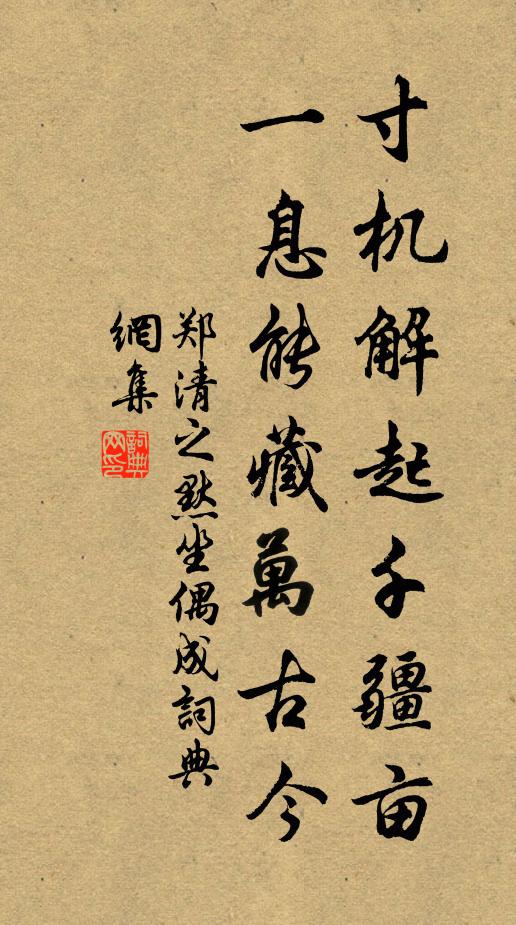 寸机解起千疆亩
一息能藏萬古今
郑清之默坐偶成詞典
網集
詞典網印